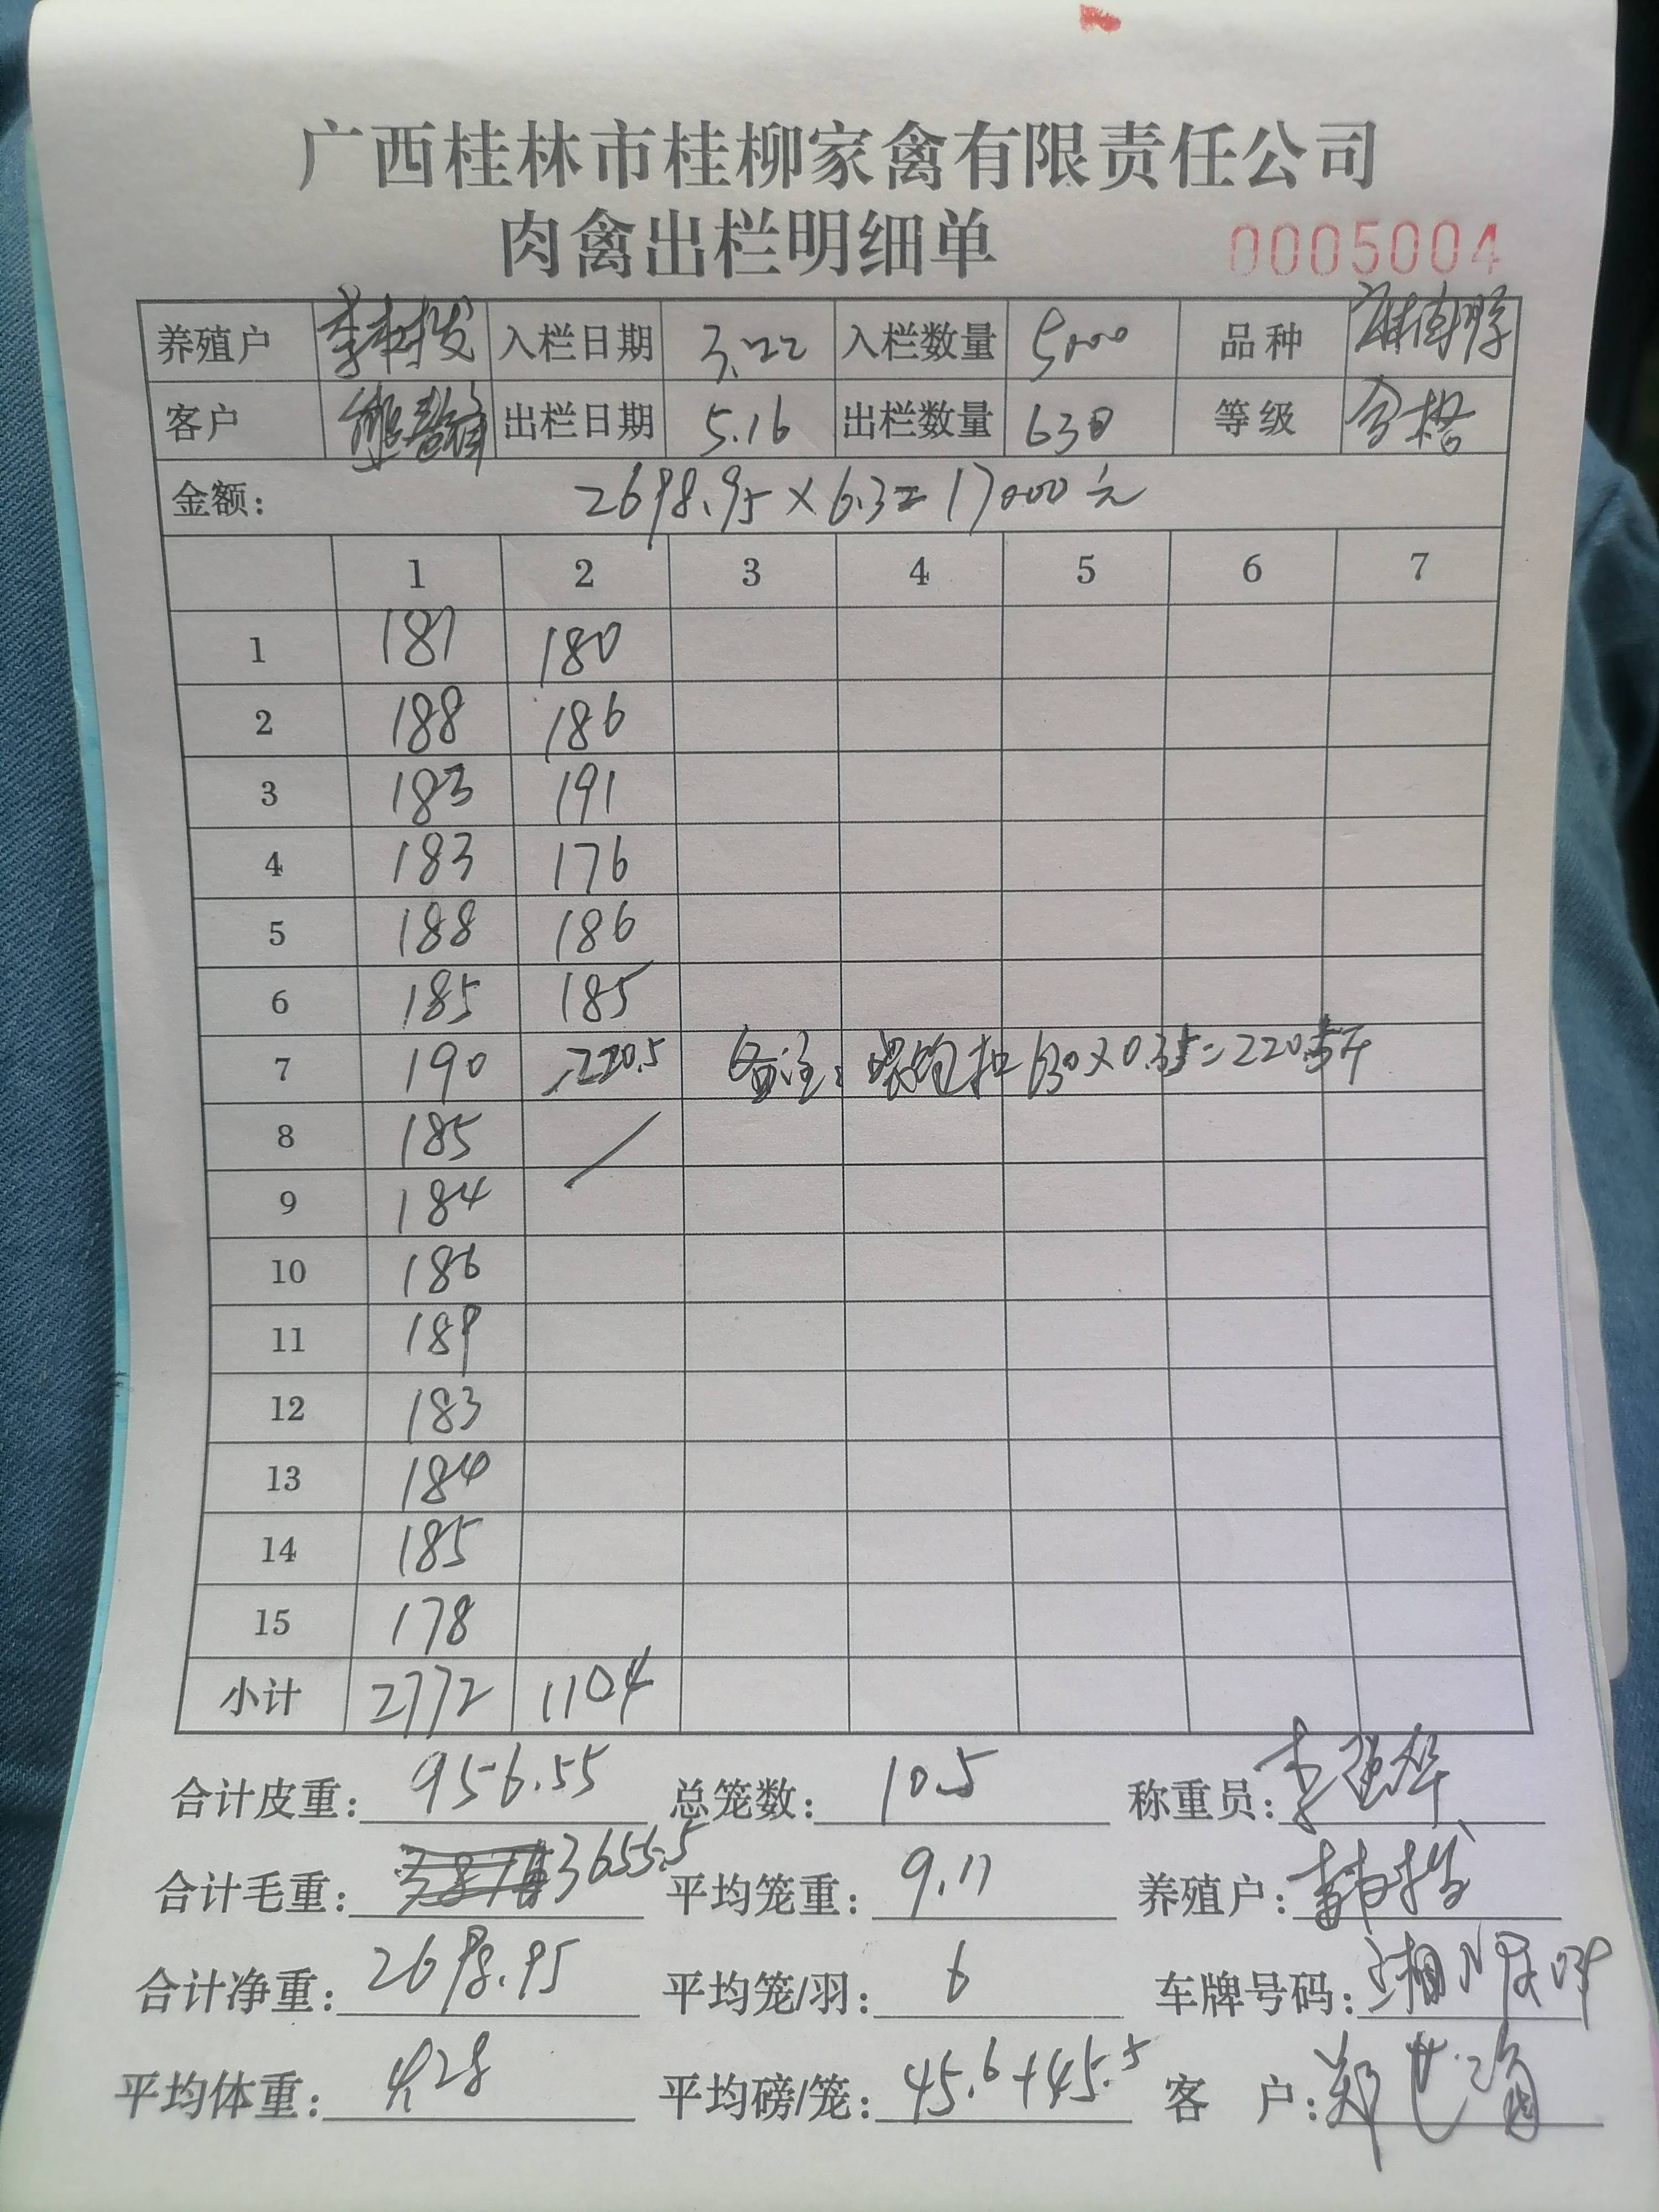 广西桂林市桂柳家禽有限责任公司
肉禽出栏明细单 0005004
养殖户 李村发 入栏日期 3.22 入栏数量 5000 品种
客户 出栏日期 5.16 出栏数量 630 等级 合格
金额: 2698.95×6.3=17000元
1 2 3 4 5 6 7
1 187 180
2 188 186
3 183 191
4 183 176
5 188 186
6 185 185
7 190 -220.5 备注: 扣 630×0.35=220.5斤
8 185
9 184
10 186
11 189
12 183
13 184
14 185
15 178
小计 2772 1104
合计皮重: 956.55 总笼数: 105 称重员: 李华
合计毛重: 3655.5 平均笼重: 9.11 养殖户:
合计净重: 2698.95 平均笼/羽: 6 车牌号码: 湘
平均体重: 4.28 平均磅/笼: 45.6+45.5 客 户: 郑